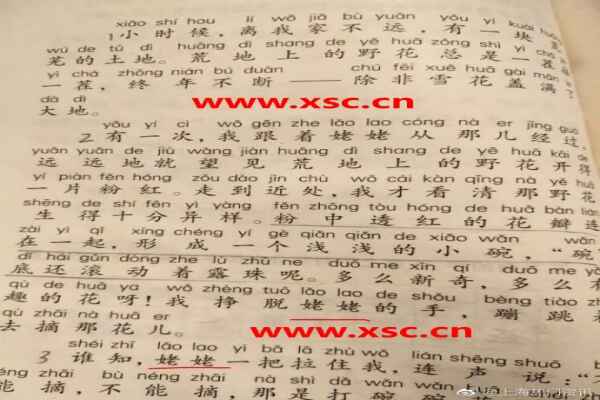 xiǎo shí hou lí wǒ jiā bù yuǎn yǒu yí kuài
1 小时候，离我家不远，有一块
wú de tǔ dì huāng dì shang de yě huā zǒng shì yì chá
芜的土地。荒地上的野花总是一茬
yì chá zhōng nián bú duàn chú fēi xuě huā gài mǎn
一茬，终年不断——除非雪花盖满了
dà dì
大地。
www.xsc.cn
yǒu yí cì wǒ gēn zhe lǎo lao cóng nà er jīng guò
2 有一次，我跟着姥姥从那儿经过，
yuǎn yuǎn de jiù wàng jiàn huāng dì shang de yě huā kāi de
远远地就望见荒地上的野花开得
yí piàn fěn hóng zǒu dào jìn chù wǒ cái kàn qīng nà yě huā
一片粉红。走到近处，我才看清那野花
shēng de shí fēn yì yàng fěn zhōng tòu hóng de huā bàn lián
生得十分异样。粉中透红的花瓣连
zài yì qǐ xíng chéng yí gè qiǎn qiǎn de xiǎo wǎn wǎn
在一起，形成一个浅浅的小碗，“碗”
dǐ hái gǔn dòng zhe lù zhū ne duō me xīn qí duō me yǒu
底还滚动着露珠呢。多么新奇，多么有
qù de huā ya wǒ zhèng tuō lǎo lao de shǒu bèng tiào zhe
趣的花呀！我挣脱姥姥的手，蹦跳着
qù zhāi nà huā er
去摘那花儿。
www.xsc.cn
shéi zhī lǎo lao yì bǎ lā zhù wǒ lián shēng shuō
3 谁知，姥姥一把拉住我，连声说：“不
néng zhāi bù néng zhāi nà shì dǎ wǎn
能摘，不能摘，那是打碗碗花